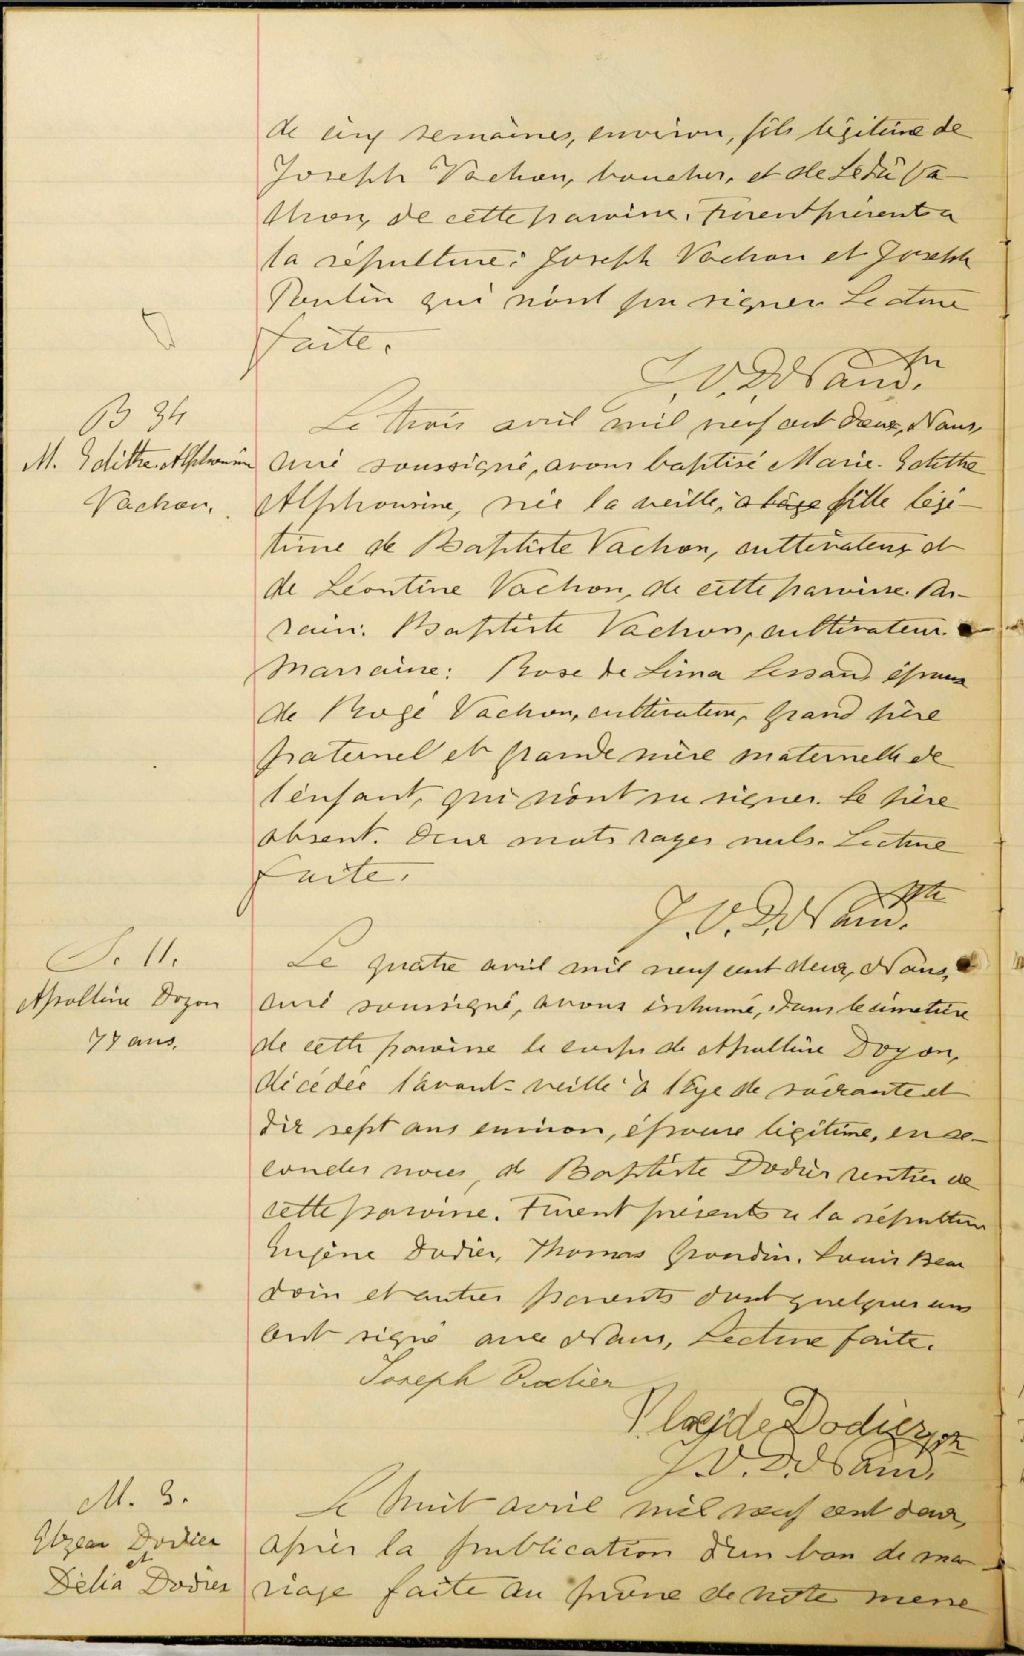 de cinq semaines, environ, fils légitime de
Joseph Vachon, boucher, et de Lédia Va-
chon, de cette paroisse. Furent présents à
la sépulture: Joseph Vachon et Joseph
Poulin qui n'ont pu signer. Lecture
faite.
J. V. D. ptre
B 34
M. Edithe Alphonsine
Vachon.
Le trois avril mil neuf cent deux, Nous,
curé soussigné, avons baptisé Marie-Edithe
Alphonsine, née la veille, à l'âge fille légi-
time de Baptiste Vachon, cultivateur et
de Léontine Vachon, de cette paroisse. Par-
rain: Baptiste Vachon, cultivateur.
Marraine: Rose de Lima Lessard épouse
de Rogé Vachon, cultivateur, grand père
paternel et grande mère maternelle de
l'enfant, qui n'ont su signer. Le père
absent. Deux mots rayés nuls. Lecture
faite.
J. V. D. ptre
S. 11.
Apolline Doyon
77 ans.
Le quatre avril mil neuf cent deux, Nous,
curé soussigné, avons inhumé, dans le cimetière
de cette paroisse le corps de Apolline Doyon,
décédée l'avant-veille à l'âge de soixante et
dix sept ans environ, épouse légitime, en se-
condes noces, de Baptiste Dodier rentier de
cette paroisse. Furent présents à la sépulture
Eugène Dodier, Thomas Grondin, Louis Beau
doin et autres parents dont quelques uns
ont signé avec Nous, Lecture faite.
Joseph Dodier
Placide Dodier
J. V. D. ptre
M. 3.
Elzéar Dodier
et
Délia Dodier
Le huit avril mil neuf cent deux,
après la publication d'un ban de ma-
riage faite au prône de notre messe